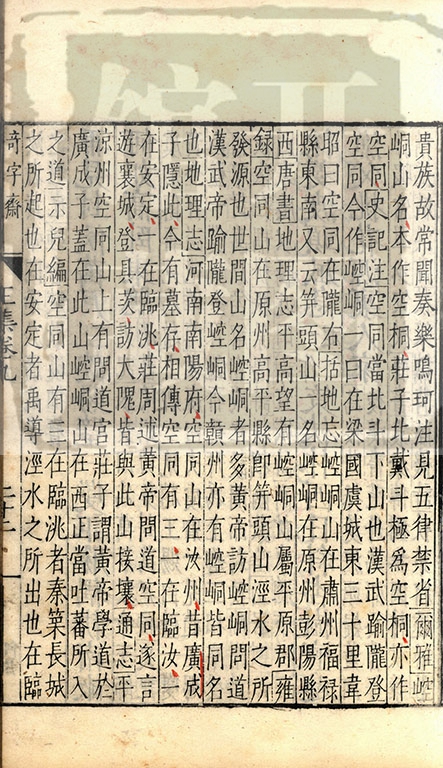 貴族故常聞奏樂鳴珂注見五律禁省爾雅崆
峒山名本作空桐莊子北戴斗極爲空桐亦作
空同史記注空同當北斗下山也漢武踰隴登
空同今作崆峒一曰在梁國虞城東三十里韋
昭曰空同在隴右括地志崆峒山在肅州福祿
縣東南又云笄頭山一名崆峒在原州彭陽縣
西唐書地理志平高望有崆峒山屬平原郡雍
録空同山在原州高平縣卽笄頭山涇水之所
發源也世間山名崆峒者多黃帝訪崆峒問道
漢武帝踰隴登崆峒今贛州亦有崆峒皆同名
也地理志河南南陽府空同山在汝州昔廣成
子隱此今有墓存相傳空同有三一在臨汝一
在安定一在臨洮莊周述黃帝問道空同逐言
遊襄城登具茨訪大隗皆與此山接壤通志平
涼州空同山上有問道宮莊子謂黃帝學道於
廣成子蓋在此山崆峒山在西正當吐蕃所入
之道示兒編空同山有三在臨洮者秦築長城
之所起也在安定者禹導涇水之所出也在臨
奇字齋
正集卷九
二十二